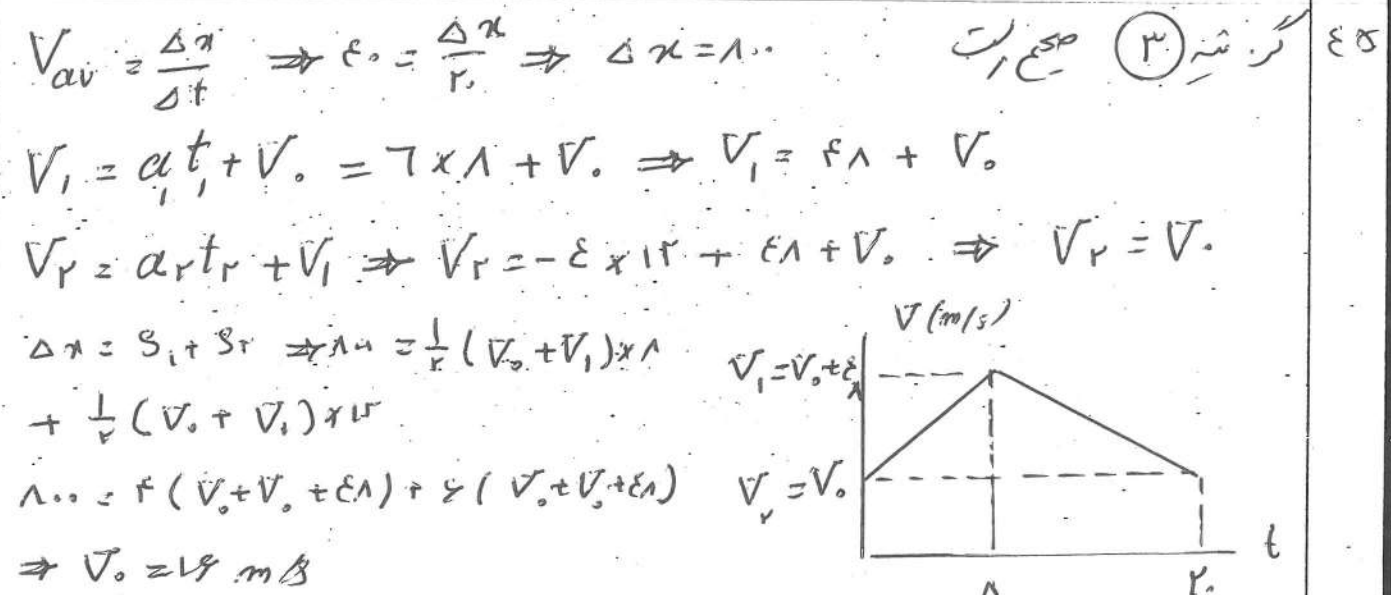 ٤٥ گزینه ۳ صحیح است
V_av = Δx/Δt ⇒ ٤۰ = Δx/۲۰ ⇒ Δx = ۸۰۰
V₁ = a₁t₁ + V₀ = ٦ × ۸ + V₀ ⇒ V₁ = ۴۸ + V₀
V₂ = a₂t₂ + V₁ ⇒ V₂ = -٤ × ۱۲ + ٤۸ + V₀ ⇒ V₂ = V₀
Δx = S₁ + S₂ ⇒ ۸۰۰ = ۱/۲ (V₀ + V₁) × ۸
+ ۱/۲ (V₀ + V₁) × ۱۲
۸۰۰ = ۴ (V₀ + V₀ + ٤۸) + ۶ (V₀ + V₀ + ٤۸)
⇒ V₀ = ۱۶ m/s
V (m/s)
V₁ = V₀ + ٤۸
V₂ = V₀
t
۸
۲۰